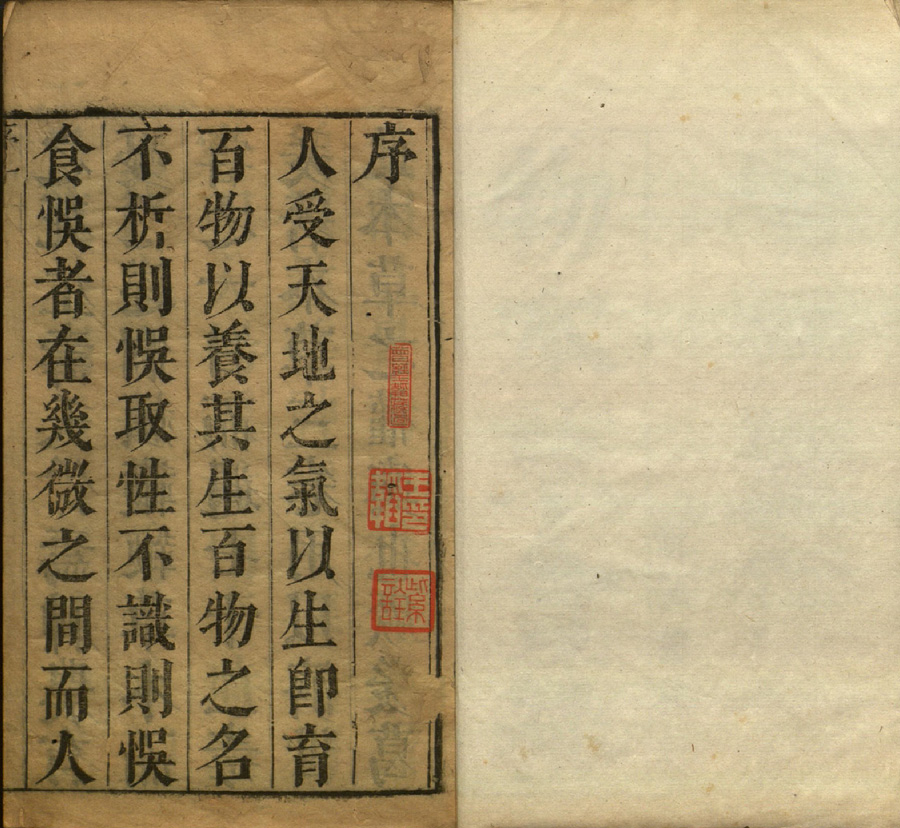 序
人受天地之氣以生即育
百物以養其生百物之名
不析則悞取性不識則悞
食悞者在幾微之間而人